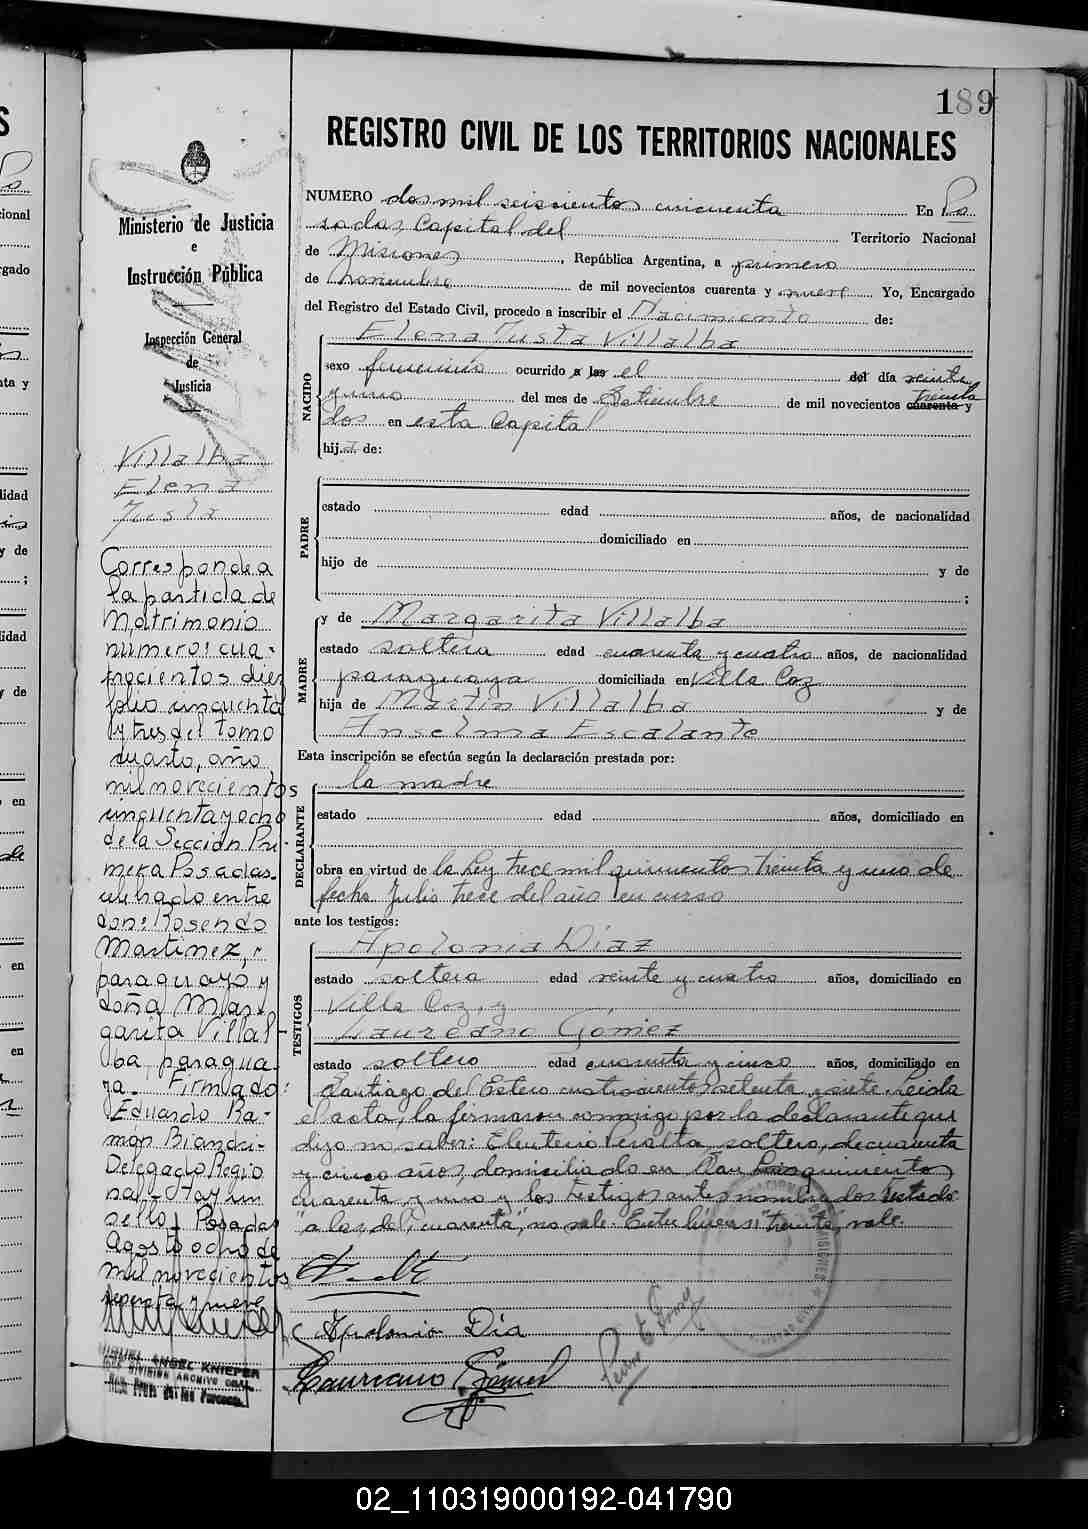 189
REGISTRO CIVIL DE LOS TERRITORIOS NACIONALES
NUMERO dos mil seiscientos cincuenta En Po
sadas, Capital del Territorio Nacional
de Misiones, República Argentina, a primero
de noviembre de mil novecientos cuarenta y nueve Yo, Encargado
del Registro del Estado Civil, procedo a inscribir el Nacimiento de:
Elena Justa Villalba
NACIDO
sexo femenino ocurrido a las el del día veinte
y uno del mes de Setiembre de mil novecientos cuarenta y treinta
dos en esta Capital
hija de:
PADRE
estado edad años, de nacionalidad
domiciliado en
hijo de y de
;
MADRE
y de Margarita Villalba
estado soltera edad cuarenta y cuatro años, de nacionalidad
paraguaya domiciliada en Villa Coz
hija de Martin Villalba y de
Anselma Escalante
Esta inscripción se efectúa según la declaración prestada por:
DECLARANTE
la madre
estado edad años, domiciliado en
obra en virtud de la Ley trece mil quinientos treinta y uno de
fecha Julio trece del año en curso
ante los testigos:
TESTIGOS
Apolonia Díaz
estado soltera edad veinte y cuatro años, domiciliado en
Villa Coz, y
Laureano Gómez
estado soltero edad cuarenta y cinco años, domiciliado en
Santiago del Estero cuatrocientos setenta y siete. Leida
el acta, la firmaron conmigo por la declarante que
dijo no saber: Eleuterio Peralta, soltero, de cuarenta
y cinco años, domiciliado en San quinientos
cuarenta y uno y los testigos antes nombrados. Testado
"a las, del, cuarenta", no vale. Entre lineas: "treinta", vale.
Apolonia Día
Laureano Gómez
Ministerio de Justicia
e
Instrucción Pública
Inspección General
de
Justicia
Villalba
Elena
Justa
Corresponde a
la partida de
Matrimonio
número: cua-
trocientos diez
folio cincuenta
y tres del tomo
cuarto, año
mil novecientos
cincuenta y ocho
de la Sección Pri-
mera Posadas.
celebrado entre
don: Rosendo
Martinez,
paraguayo y
doña Mar-
garita Villal-
ba, paragua-
ya. Firmado:
Eduardo Ra-
món
Delegado Regio
nal. Hay un
sello. Posadas
Agosto ocho de
mil novecientos
setenta y nueve
MIGUEL ANGEL KNIEPER
DIVISION ARCHIVO GRAL.
02_110319000192-041790